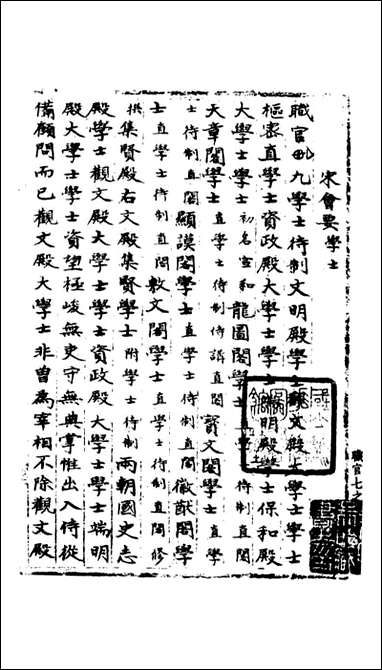 宋會要學士
職官 九學士待制文明殿學士 文殿大學士學士
樞密直學士資政殿大學士學士 明殿學士保和殿
大學士學士初名宣和龍圖閣學士直學士待制直閣
天章閣學士直學士待制侍講直閣寶文閣學士直學
士待制直閣顯謨閣學士直學士待制直閣徽猷閣學
士直學士待制直閣敷文閣學士直學士待制直閣修
撰集賢殿右文殿集賢學士附學士待制兩朝國史志
殿學士觀文殿大學士學士資政殿大學士學士端明
殿大學士學士資望極峻無吏守無典掌惟出入侍從
備顧問而已觀文殿大學士非曾為宰相不除觀文殿
職官七之